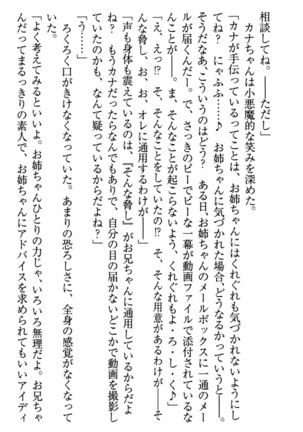 相談してね。――ただし」
　カナちゃんは小悪魔的な笑みを深めた。
「カナが手伝っているってことは、お姉ちゃんにはくれぐれも気づかれないようにし
てね？　にゃふふ…♪　お姉ちゃんに気づかれた場合、どうなるかっていうと――。
そうだなあ、こういうのはどう？　ある日、お姉ちゃんのメールボックスに一通のメー
ルが届くんだー。で、さっきのピーでピーな一幕が動画ファイルで添付されているな
んことが――。ま、そんなことが起こらないよう、くれぐれもよ・ろ・し・く♪」
「え、えっ!?　そ、そんなことをしていたの!?　そ、そんな用意があるわけが――そ
んな脅し、お、お、オレに通用するわけが――」
「声も身体も震えているのは、『そんな脅し』がお兄ちゃんに通用しているからだよ
ね？　もうカナだったらなんでもありで、自分の目の届かないどこかで動画を撮影し
ていたのかも、なんて疑っているからだよね？」
「う……」
　ろくろく口がきけなくなっていた。あまりの恐ろしさに、全身の感覚がなくなって
いた。
「よく考えてみるといいよ。お姉ちゃんひとりの力じゃ、いろいろ無理だよ。お兄ちゃ
んだってまるっきりの素人で、お姉ちゃんにアドバイスを求められてもいいアイディ